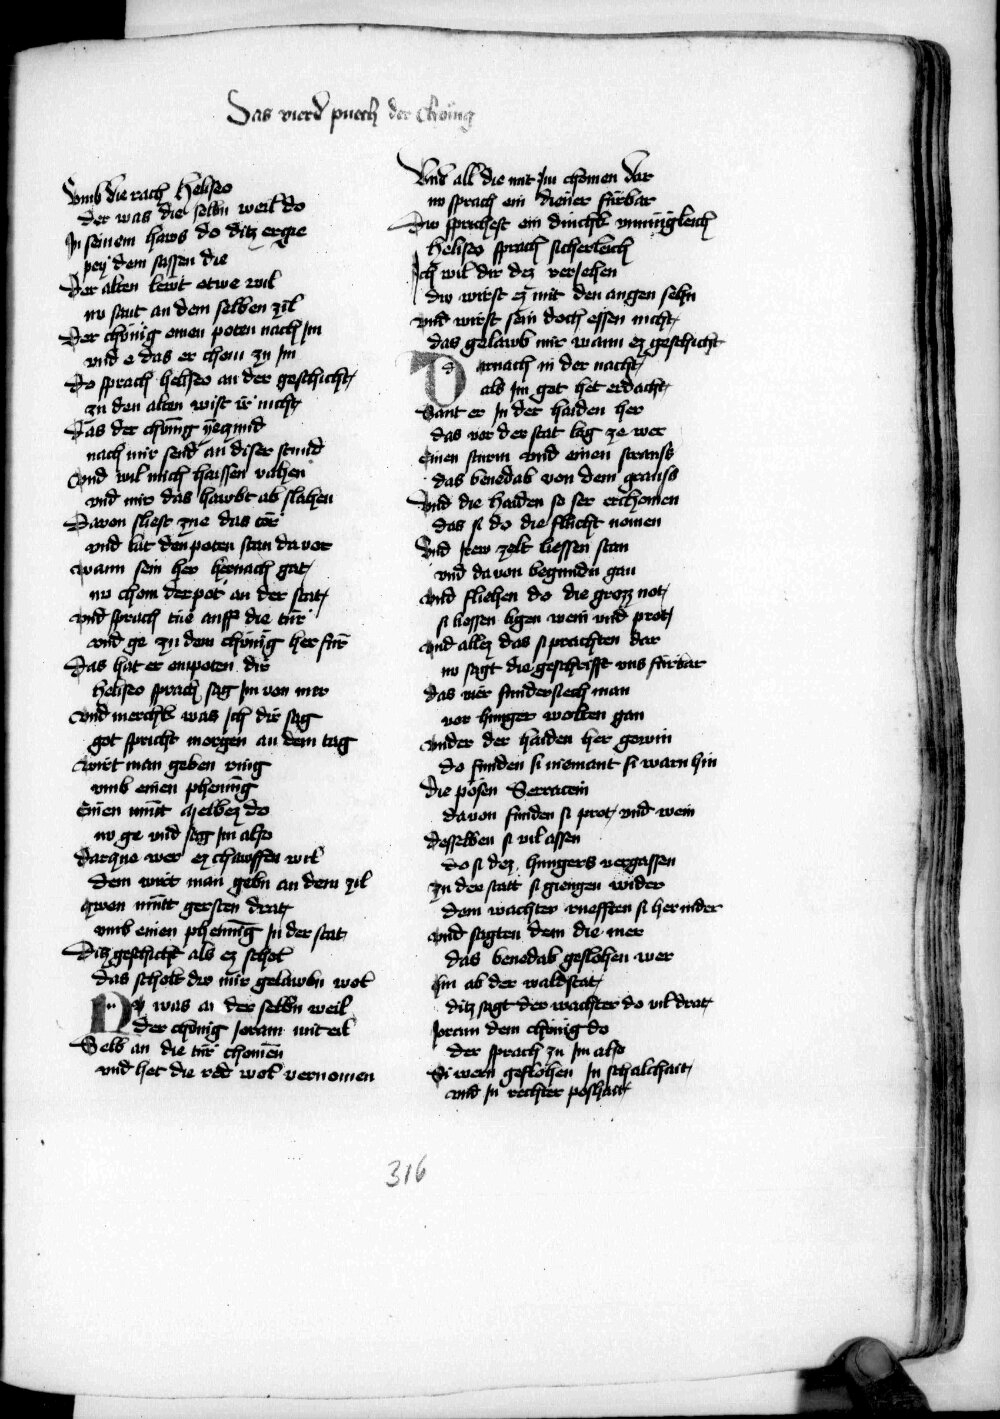 Das vierd puech der Chönig
Vmb die rach Heliseo
der was die selbn weil do
In seinem haws do ditz ergie
pey dem sassen die
Der alten lewt etwe vil
nv sant an dem selben zil
Der chönig einen poten nach Im
vnd e das er chom zu Im
Do sprach heliseo an der geschicht
zu den alten wist ir nicht
Das der chönig yeczund
nach mir send an diser stund
Vnd wil mich haissen vahen
vnd mir das hawbt ab slahen
Davon sliest zue das tör
vnd lat den poten stan da vor
Wann sein her hernach gat
nv chom der pot an der stat
Vnd sprach tüe auff die tür
vnd ge zu dem chönig her für
Das hat er enpoten dir
Heliseo sprach sag Im von mir
Vnd merchk was Ich dir sag
got spricht morgen an dem tag
Wirt man geben ring
vmb einen phening
Einen mütt melbez do
nv ge vnd sag Im also
Darzue wer ez chawffen wil
dem wirt man gebn an dem zil
Zwen mütt gersten drat
vmb einen phening In der stat
Ditz geschicht als ez schol
das scholt dw mir gelawbn wol
Nv was an der selbn weil
der chönig Joram mit eil
Selb an die tür chomen
vnd het die red wol vernomen
Vnd all die mit Im chomen dar
nv sprach ein diener fürbar
Dw sprichest ein dinchk vnmügleich
Heliseo sprach sicherleich
Ich wil dir dez veriehen
dw wirst ez mit den augen sehn
Vnd wirst sein doch essen nicht
das gelawb mir wann ez geschicht
Darnach in der nacht
als Im got het erdacht
Sant er In der haiden her
das vor der stat lag ze wer
Einen sturm vnd einen strauss
das benedab von dem grauss
Vnd die haiden so ser erchomen
das si do die flucht nomen
Vnd Irew zelt liessen stan
vnd davon begundn gan
Vnd fliehen do die grozz not
si liessen ligen wein vnd prot
Vnd allez das si prachten dar
nv sagt die geschrifft vns fürbar
Das vier sundersiech man
vor hunger wolten gan
Vnder der haiden her gewin
do funden si niemant si warn hin
Die pösen Serracein
davon funden si prot vnd wein
Desselben si vil assen
do si dez hungers vergassen
Zu der statt si giengen wider
dem wachter ruefften si her nider
Vnd sagten dem die mer
das benedab geflohen wer
Hin ab der waldstat
ditz sagt der wachter do vil drat
Joram dem chönig do
der sprach zu Im also
Si wern geflohen In schalchait
vnd In rechter poshait
316